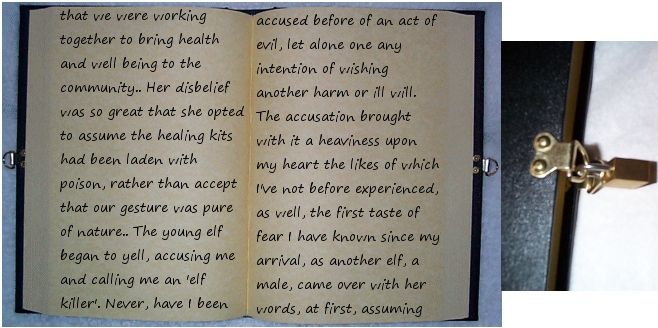 that we were working
together to bring health
and well being to the
community.. Her disbelief
was so great that she opted
to assume the healing kits
had been laden with
poison, rather than accept
that our gesture was pure
of nature.. The young elf
began to yell, accusing me
and calling me an 'elf
killer'. Never, have I been
accused before of an act of
evil, let alone one any
intention of wishing
another harm or ill will.
The accusation brought
with it a heaviness upon
my heart the likes of which
I've not before experienced,
as well, the first taste of
fear I have known since my
arrival, as another elf, a
male, came over with her
words, at first, assuming